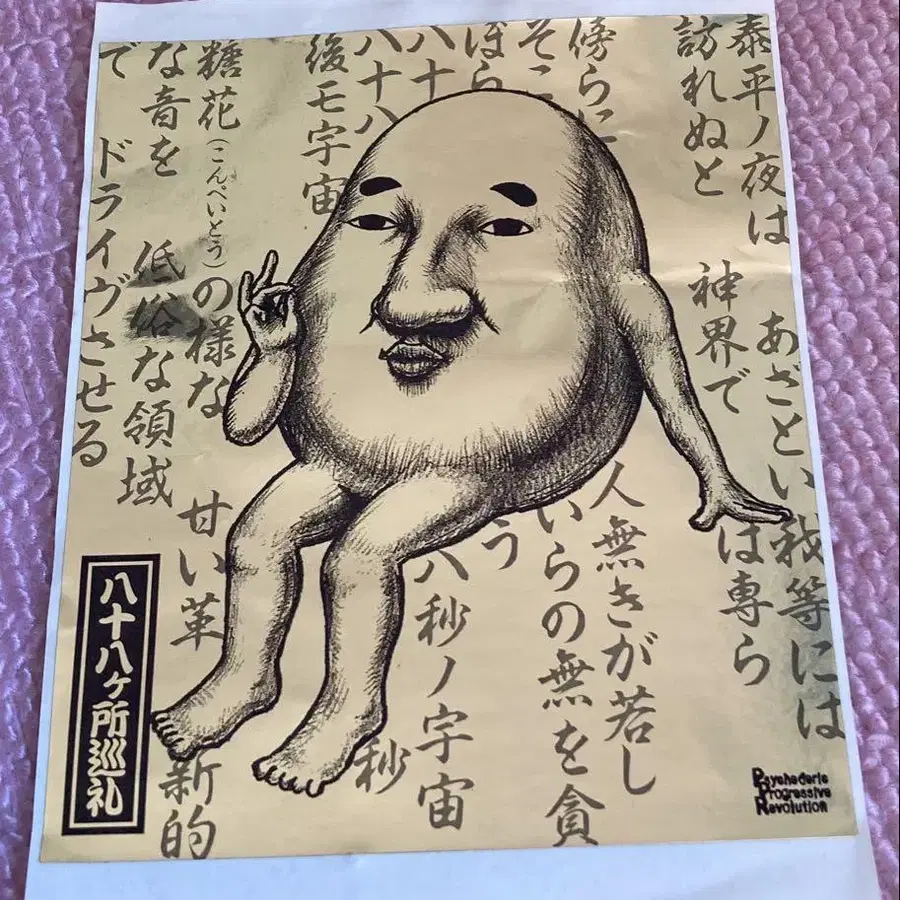 泰平ノ夜は　あざとい我等には
訪れぬと　神界では専ら
傍らに　人無きが若し
そこ　いらの無を貪
ぼら　う
八十　八秒ノ宇宙
八十八　秒
後モ宇宙
糖花（こんぺいとう）の様な　甘い革新的
な音を　低俗な領域
で　ドライヴさせる
八十八ヶ所巡礼
Psychederic
Progressive
Revolution